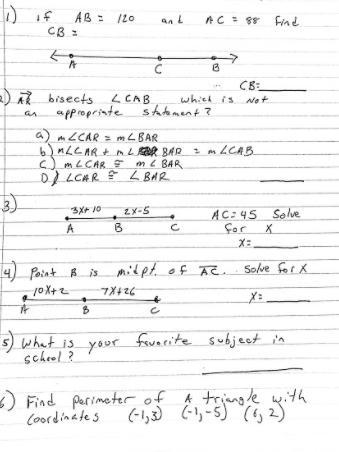 1) if AB = 120 and AC = 88 Find
CB =
A C B
CB: ____
2) AR bisects ∠CAB which is Not
an appropriate statement?
a) m∠CAR = m∠BAR
b) m∠CAR + m∠ BAR = m∠CAB
C) m∠CAR ≅ m∠BAR
D) ∠CAR ≅ ∠BAR
3)
3x+10 2x-5
A B C
AC=45 Solve
for x
x= ____
4) Point B is midpt. of AC. Solve for x
10x+2 7x+26
A B C
x= ____
5) What is your favorite subject in
school?
6) Find perimeter of A triangle with
coordinates (-1,3) (-1,-5) (6,2)